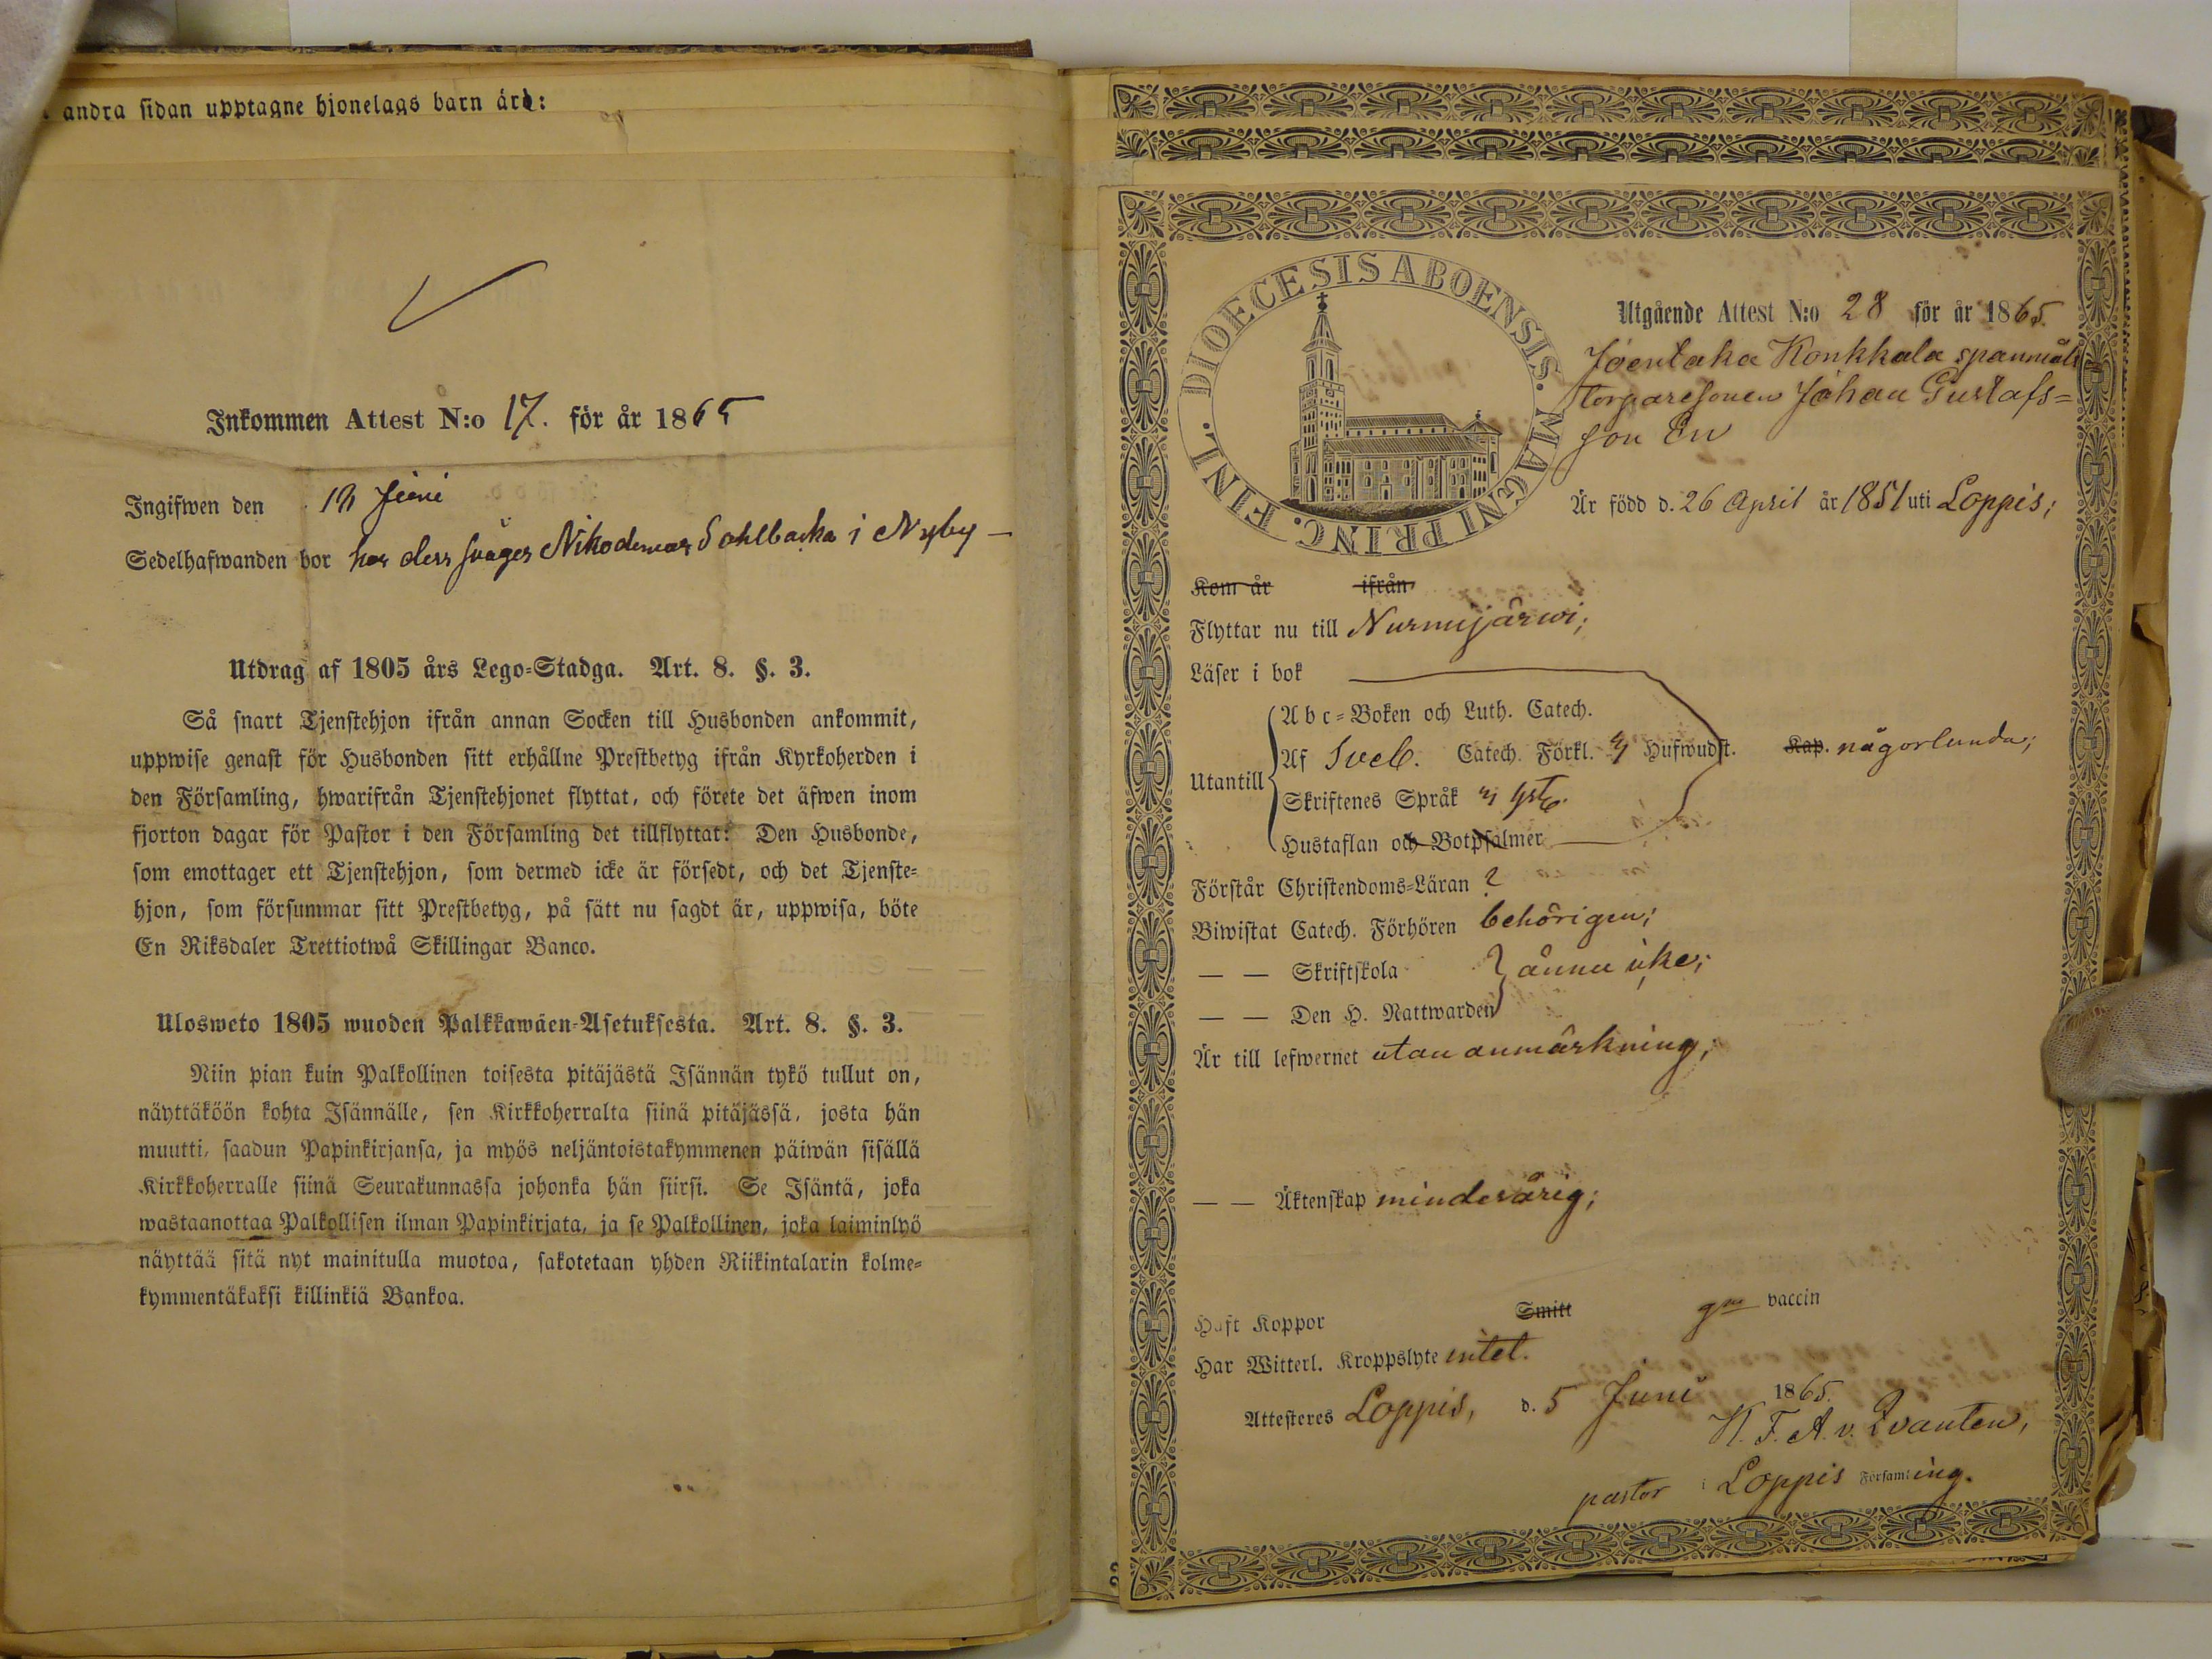 andra sidan upptagne hjonelags barn äro:
Inkommen Attest N:o 17. för år 1865
Ingifwen den Juni
Sedelhafwanden bor hos dess swåger Nikodemus Sahlbacka i Nyby —
Utdrag af 1805 års Lego=Stadga. Art. 8. §. 3.
Så snart Tjenstehjon ifrån annan Socken till Husbonden ankommit,
uppwise genast för Husbonden sitt erhållne Prestbetyg ifrån Kyrkoherden i
den Församling, hwarifrån Tjenstehjonet flyttat, och förete det äfwen inom
fjorton dagar för Pastor i den Församling det tillflyttat: Den Husbonde,
som emottager ett Tjenstehjon, som dermed icke är försedt, och det Tjenste=
hjon, som försummar sitt Prestbetyg, på sätt nu sagdt är, uppwisa, böte
En Riksdaler Trettiotwå Skillingar Banco.
Ulosweto 1805 wuoden Palkkawäen=Asetuksesta. Art. 8. §. 3.
Niin pian kuin Palkollinen toisesta pitäjästä Isännän tykö tullut on,
näyttäköön kohta Isännälle, sen Kirkkoherralta siinä pitäjässä, josta hän
muutti, saadun Papinkirjansa, ja myös neljäntoistakymmenen päiwän sisällä
Kirkkoherralle siinä Seurakunnassa johonka hän siirsi. Se Isäntä, joka
wastaanottaa Palkollisen ilman Papinkirjata, ja se Palkollinen, joka laiminlyö
näyttää sitä nyt mainitulla muotoa, sakotetaan yhden Riikintalarin kolme=
kymmentäkaksi killinkiä Bankoa.
DIOECESIS ABOENSIS. MAGNI PRINC. FINL.
Utgående Attest N:o 28 för år 1865.
Joentaka Konkkala spannmåls
torparesonen Johan Gustafs=
son En
Är född d. 26 April år 1851 uti Loppis;
Kom år ifrån
Flyttar nu till Nurmijärwi;
Läser i bok
Utantill
Abc=Boken och Luth. Catech.
Af Sveb. Catech. Förkl. Hufwudst. Kap. någorlunda;
Skriftenes Språk
Hustaflan och Botpsalmer
Förstår Christendoms=Läran ?
Biwistat Catech. Förhören behörigen;
— — Skriftskola
ännu icke;
— — Den H. Nattwarden
Är till lefwernet utan anmärkning;
— — Äktenskap minderårig;
Haft Koppor Smitt gm vaccin
Har Witterl. Kroppslyte intet.
Attesteres Loppis, d. 5 Juni 1865.
K. F. A. v. Qvanten,
pastor i Loppis Församling.